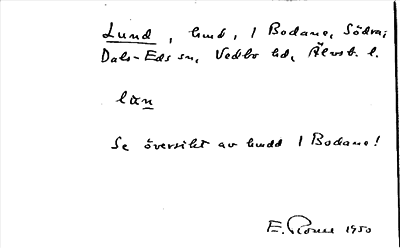 Lund, hmd, 1 Bodane, Södra;
Dals-Eds sn, Vedbo hd, Älvsb. l.
lœn
Se översikt av hmdd 1 Bodane!
E. 1950